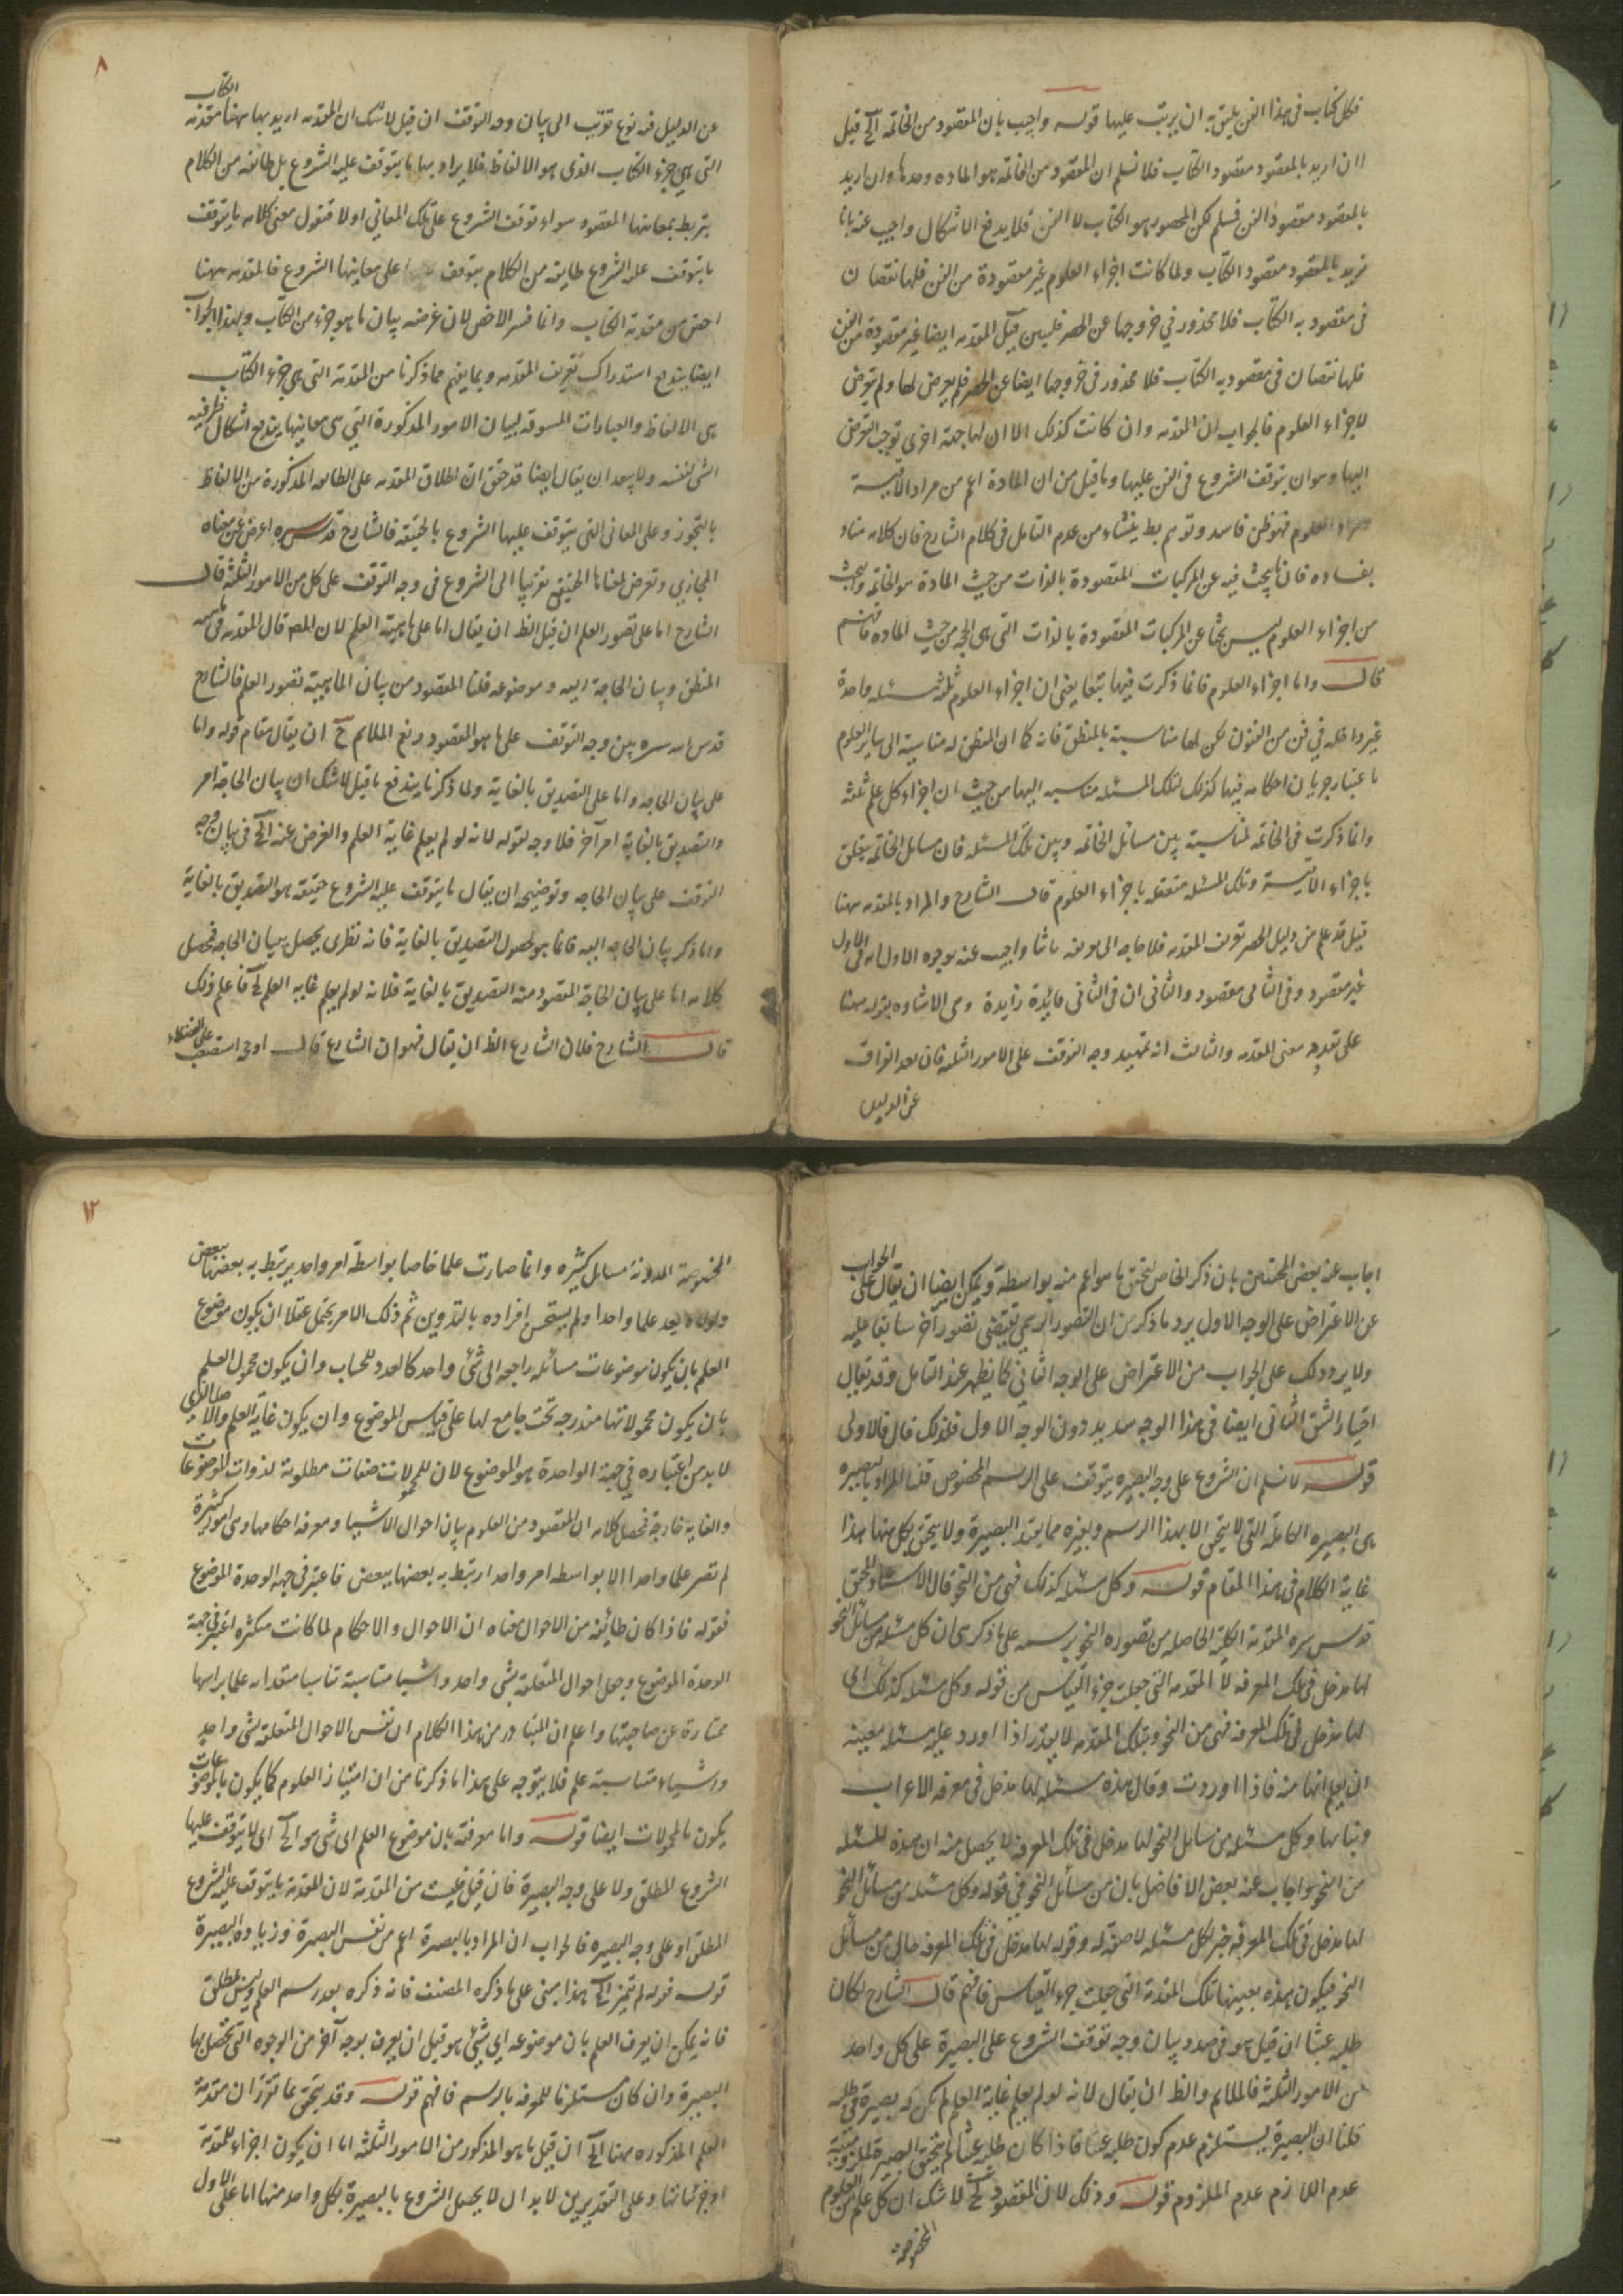 فكل كتاب في هذا الفن يليق به ان يرتب عليها قوله واجيب بان المقصود من الخاتمة الخ قيل
ان اريد بالمقصود مقصود الكتاب فلا نسلم ان المقصود من الخاتمة هو المادة وحدها وان اريد
بالمقصود مقصود الفن فمسلم لكن المحصور هو الكتاب لا الفن فلا يدفع الاشكال واجيب عنه بانا
نريد بالمقصود مقصود الكتاب ولما كانت اجزاء العلوم غير مقصودة من الفن فلها نقصان
في مقصوديه الكتاب فلا محذور في خروجها عن الحصر فليس قيل المقدمه ايضا غير مقصودة من الفن
فلها نقصان في مقصوديه الكتاب فلا محذور في خروجها ايضا عن الحصر فلم يعرض لها ولم يتعرض
لاجزاء العلوم فالجواب ان المقدمه وان كانت كذلك الا ان لها جهة اخرى توجب التعرض
اليها وهو ان يتوقف الشروع في الفن عليها وما قيل من ان المادة اعم من مواد الاقيسة
العلوم فهو ظن فاسد وتوهم ينشاء من عدم التامل في كلام الشارح فان كلامه مناد
بفساده فان ما يبحث فيه عن المركبات المقصودة بالذات من حيث المادة هو الخاتمة والبحث
من اجزاء العلوم ليس بحثا عن المركبات المقصودة بالذات التي هي الحجة من حيث المادة فافهم
قال واما اجزاء العلوم فانما ذكرت فيها تبعا يعني ان اجزاء العلوم ثلثة مسئلة واحدة
غير داخلة في فن من الفنون لكن لها مناسبة بالمنطق فانه كما ان المنطق له مناسبة الى ساير العلوم
باعتبار جريان احكامه فيها كذلك لتلك المسئلة مناسبه اليها من حيث ان اجزاء كل علم ثلثة
وانما ذكرت في الخاتمة لمناسبة بين مسائل الخاتمة وبين تلك المسئلة فان مسائل الخاتمة يتعلق
باجزاء الاقيسة وتلك المسئلة متعلقة باجزاء العلوم قال الشارح والمراد بالمقدمه ههنا
قيل قد علم من دليل الحصر تعريف المقدمه فلا حاجة الى تعريفه ثانيا واجيب عنه بوجوه الاول انه في الاول
غير مقصود وفي الثاني مقصود والثاني ان في الثاني فائدة زايدة وهي الاشاره بقوله ههنا
على تعدد معنى المقدمه والثالث انه تمهيد وجه التوقف على الامور الثلثة فان بعد الفراغ
عن الدليل
٨
عن الدليل فيه نوع تقريب الى بيان وجه التوقف ان قيل لا شك ان المقدمه اريد بها ههنا مقدمة الكتاب
التي هي جزء الكتاب الذي هو الالفاظ فلا يراد بها ما يتوقف عليه الشروع بل طائفة من الكلام
يرتبط بمعانيها المقصود سواء توقف الشروع على تلك المعاني اولا فنقول معنى كلامه ما يتوقف
ما يتوقف عليه الشروع طايفة من الكلام يتوقف على معانيها الشروع فالمقدمه ههنا
اخص من مقدمة الكتاب وانما فسر الاخص لان غرضه بيان ما هو جزء من الكتاب وبهذا الجواب
ايضا يندفع استدراك تعريف المقدمه وبما يفهم مما ذكرنا من المقدمة التي هي جزء الكتاب
هي الالفاظ والعبارات المسوقة لبيان الامور المذكورة التي هي معانيها يندفع اشكال ظرفية
الشئ لنفسه ولا يبعد ان يقال ايضا قد حقق ان اطلاق المقدمه على الطائفة المذكورة من الالفاظ
بالتجوز وعلى المعاني التي يتوقف عليها الشروع بالحقيقة فالشارح قدس سره اعرض عن معناه
المجازي وتعرض لمعناها الحقيقي تقريبا الى الشروع في وجه التوقف على كل من الامور الثلثة قال
الشارح اما على تصور العلم ان قيل الظ ان يقال اما على ماهية العلم لان المص قال المقدمه في ماهية
المنطق وبيان الحاجة اليه وموضوعه قلنا المقصود من بيان الماهية تصور العلم فالشارح
قدس الله سره بين وجه التوقف على ما هو المقصود ونع الملايم ح ان يقال مقام قوله واما
على بيان الحاجة واما على التصديق بالغاية ولما ذكرنا يندفع ما قيل لا شك ان بيان الحاجة امر
والتصديق بالغاية امر آخر فلا وجه لقوله لانه لو لم يعلم غاية العلم والغرض عنه الخ في بيان وجه
التوقف على بيان الحاجة وتوضيحه ان يقال ما يتوقف عليه الشروع حقيقة هو التصديق بالغاية
واما ذكر بيان الحاجة اليه فانما هو لحصول التصديق بالغاية فانه نظرى يحصل ببيان الحاجة فحصل
كلامه اما على بيان الحاجة المقصود منه التصديق بالغاية فلانه لو لم يعلم غاية العلم الخ فاعلم ذلك
قال الشارح فلان الشارع الظ ان يقال فهو ان الشارع قال
اجاب عنه بعض المحققين بان ذكر الخاص لتحقق ما هو اعم منه بواسطة ويمكن ايضا ان يقال على الجواب
عن الاعتراض على الوجه الاول يرد ما ذكر من ان التصور الرسمي يقتضي تصور آخر سابقا عليه
ولا يرد ذلك على الجواب من الاعتراض على الوجه الثاني كما يظهر عند التامل وقد يقال
اختيار الشق الثاني ايضا في هذا الوجه سديد دون الوجه الاول فلذلك قال فالاولى
قوله لا نسلم ان الشروع على وجه البصيره يتوقف على الرسم المخصوص قلنا المراد بالبصيره
هي البصيره الكاملة التي لا يتحقق الا بهذا الرسم وبغيره مما يفيد البصيرة ولا يتحقق بكل منها هذا
غاية الكلام في هذا المقام قوله وكل مسئله كذلك فهي من النحو قال الاستاد المحقق
قدس سره المقدمة الكلية الحاصله من تصوره النحو برسمه على ما ذكر هي ان كل مسئله من مسائل النحو
لها مدخل في تلك المعرفه لا المقدمه التي جعلت جزء القياس من قوله وكل مسئله كذلك اي
لها مدخل في تلك المعرفه فهي من النحو وبتلك المقدمه لا يقدر اذا اورد عليه مسئله معينه
ان يعلم انها منه فاذا اوردت وقال هذه مسئله لها مدخل في معرفه الاعراب
وبنائها وكل مسئله من مسايل النحو لها مدخل في تلك المعرفه لا يحصل منه ان هذه المسئله
من النحو واجاب عنه بعض الافاضل بان من مسائل النحو في قوله وكل مسئله من مسائل النحو
لها مدخل في تلك المعرفه خبر لكل مسئله لا صفة له وقوله لها مدخل في تلك المعرفه حال من مسائل
النحو فيكون هذه بعينها تلك المقدمة التي جعلت جزء القياس فافهم قال الشارح لكان
طلبه عبثا ان قيل هو في صدد بيان وجه توقف الشروع على البصيرة على كل واحد
من الامور الثلثة فالملايم والظ ان يقال لانه لو لم يعلم غاية العلم لم يكن له بصيرة في طلبه
قلنا ان البصيرة يستلزم عدم كون طلبه عبثا فاذا كان طلبه عبثا لم يتحقق البصيرة
عدم اللازم عدم الملزوم قوله وذلك لان المقصود الخ لا شك ان كل علم من العلوم
المخصوصة
١٢
المخصوصة المدونة مسايل كثيره وانما صارت علما خاصا بواسطة امر واحد يرتبط به بعضها ببعض
ولولاه لم يعد علما واحدا ولم يستحسن افراده بالتدوين ثم ذلك الامر يحتمل عقلا ان يكون موضوع
العلم بان يكون موضوعات مسائله راجعه الى شئ واحد كالعدد للحساب وان يكون محمول العلم
بان يكون محمولاتها مندرجة تحت جامع لها على قياس الموضوع وان يكون غاية العلم والامر الذي
لا بد من اعتباره في جهة الواحدة هو الموضوع لان المحمولات صفات مطلوبة لذوات الموضوعات
والغاية خارجة فحصل كلامه ان المقصود من العلوم بيان احوال الاشيا ومعرفه احكامها وهي امور كثيرة
لم تصر علما واحدا الا بواسطه امر واحد ارتبط به بعضها ببعض فاعتبر في جهة الوحدة الموضوع
فقوله فاذا كان طائفه من الاحوال معناه ان الاحوال والاحكام لما كانت متكثره اعتبر في جهة
الوحدة الموضوع وجعل احوال المتعلقة بشئ واحد واشيا متناسبة تناسبا معتدا به علما براسها
ممتازة عن صاحبتها واعلم ان المتبادر من هذا الكلام ان نفس الاحوال المتعلقة بشئ واحد
واشياء متناسبة علم فلا يتوجه على هذا ما ذكرنا من ان امتياز العلوم كما يكون بالموضوعات
يكون بالمحمولات ايضا قوله واما معرفته بان موضوع العلم اى شئ هو الخ اى لا يتوقف عليها
الشروع المطلق ولا على وجه البصيرة فان قيل فليست من المقدمة لان المقدمة ما يتوقف عليه الشروع
المطلق او على وجه البصيره فالجواب ان المراد بالبصيرة اعم من نفس البصيرة وزيادة البصيرة
قوله لم يتميز الخ هذا مبني على ما ذكره المصنف فانه ذكره بعد رسم العلم وليس بمطلق
فانه يمكن ان يعرف العلم بان موضوعه اي شئ هو قبل ان يعرف بوجه آخر من الوجوه التي تحصل بها
البصيرة وان كان مستلزما للمعرفه بالرسم فافهم قوله وقد يتحقق بما تقرر ان مقدمة
العلم المذكوره ههنا الخ ان قيل ما هو المذكور من الامور الثلثة اما ان يكون اجزاء للمقدمة
او جزئياتها وعلى التقديرين لا بد ان لا يحصل الشروع بالبصيرة بكل واحد منها اما على الاول